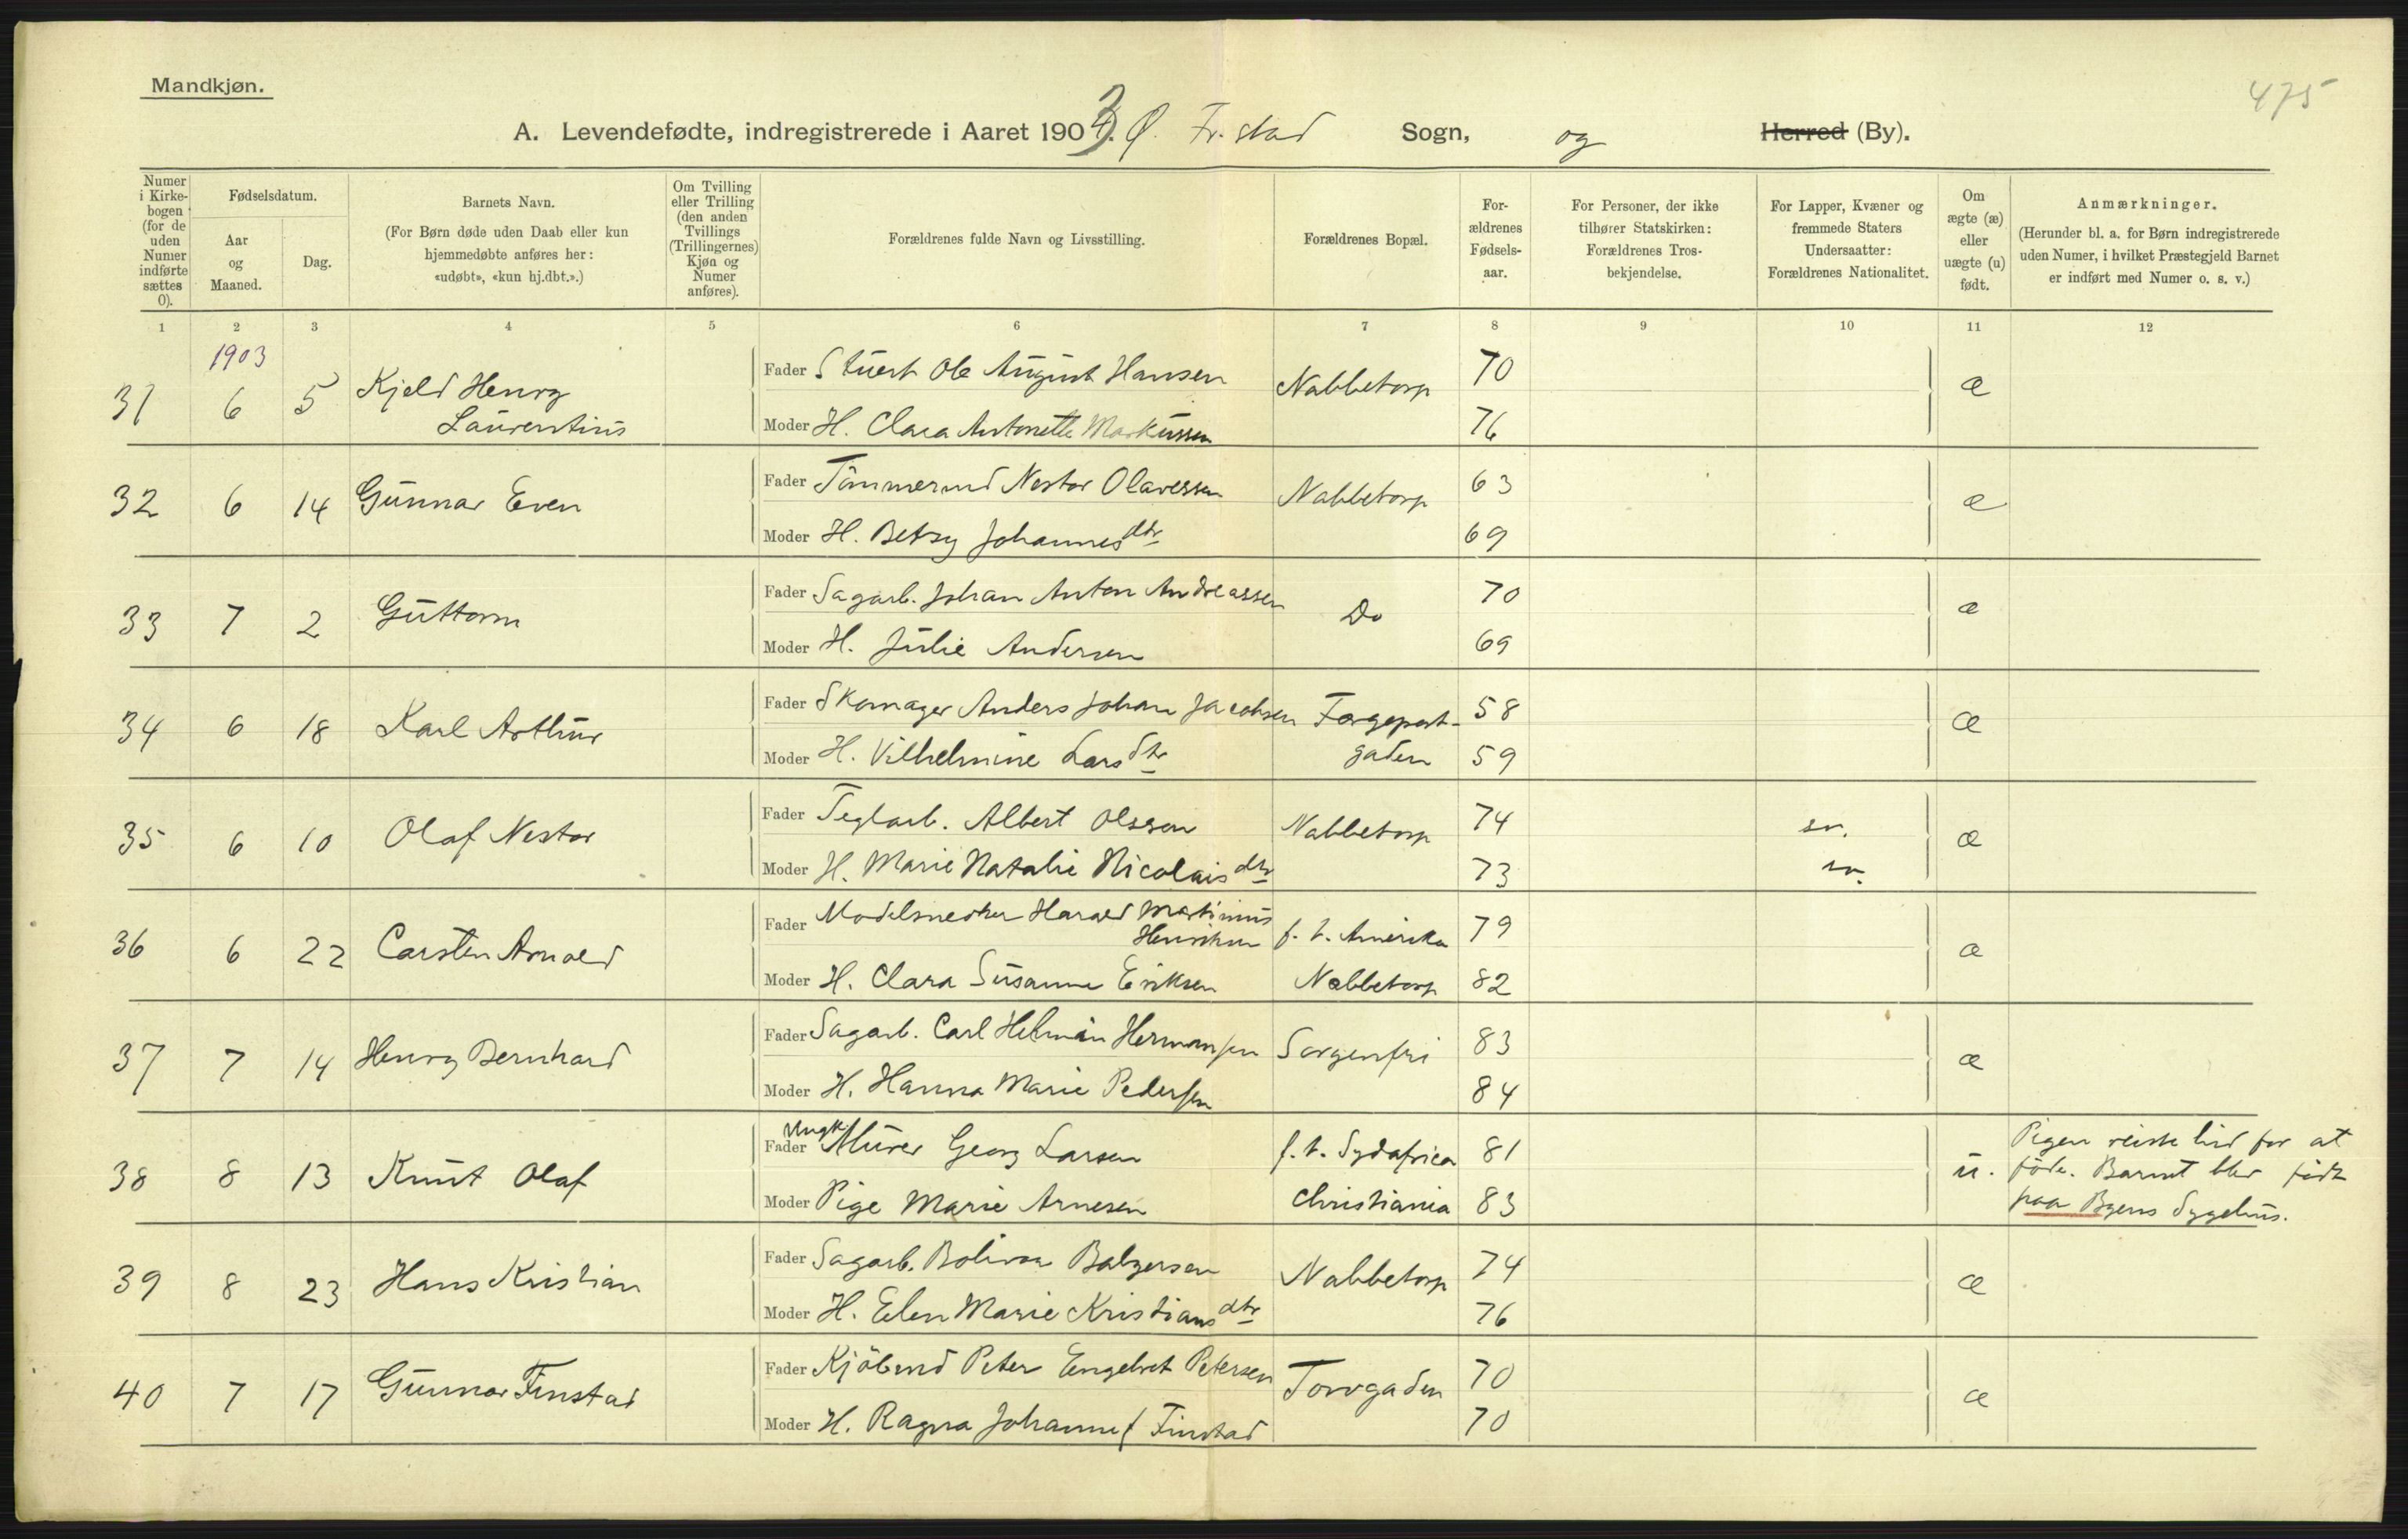 Mandkjøn.
475
A. Levendefødte, indregistrerede i Aaret 1903. Ø. Fr. stad Sogn, og Herred (By).
Numer i Kirkebogen (for de uden Numer indførte sættes 0).
Fødselsdatum.
Aar og Maaned.
Dag.
Barnets Navn.
(For Børn døde uden Daab eller kun hjemmedøbte anføres her: «udøbt», «kun hj.dbt.».)
Om Tvilling eller Trilling (den anden Tvillings (Trillingernes) Kjøn og Numer anføres).
Forældrenes fulde Navn og Livsstilling.
Forældrenes Bopæl.
Forældrenes Fødselsaar.
For Personer, der ikke tilhører Statskirken: Forældrenes Trosbekjendelse.
For Lapper, Kvæner og fremmede Staters Undersaatter: Forældrenes Nationalitet.
Om ægte (æ) eller uægte (u) født.
Anmærkninger.
(Herunder bl. a. for Børn indregistrerede uden Numer, i hvilket Præstegjeld Barnet er indført med Numer o. s. v.)
1 2 3 4 5 6 7 8 9 10 11 12
1903
31 6 5 Kjeld Henry Laurentius
Fader Stuert Ole August Hansen Nabbetorp 70 æ
Moder H. Clara Antonette Markussen 76
32 6 14 Gunnar Even
Fader Tömmermd Nestor Olavessen Nabbetorp 63 æ
Moder H. Betzy Johannesdtr 69
33 7 2 Guttorm
Fader Sagarb. Johan Anton Andreassen Do 70 æ
Moder H. Julie Andersen 69
34 6 18 Karl Arthur
Fader Skomager Anders Johan Jacobsen Færgeport- 58 æ
Moder H. Vilhelmine Larsdtr gaden 59
35 6 10 Olaf Nestor
Fader Teglarb. Albert Olssen Nabbetorp 74 sv. æ
Moder H. Marie Natalie Nicolaisdtr 73 sv.
36 6 22 Carsten Arnold
Fader Modelsnedker Harald Martinius Henriksen f. t. Amerika 79 æ
Moder H. Clara Susanne Eriksen Nabbetorp 82
37 7 14 Henry Bernhard
Fader Sagarb. Carl Helman Hermansen Sorgenfri 83 æ
Moder H. Hanna Marie Pedersen 84
38 8 13 Knut Olaf
Fader Ungk. Murer Georg Larsen f. t. Sydafrica 81 u. Pigen reiste hid for at
föde. Barnet blev födt
Moder Pige Marie Arnesen Christiania 83 paa Byens Sygehus.
39 8 23 Hans Kristian
Fader Sagarb. Bolivar Balzersen Nabbetorp 74 æ
Moder H. Elen Marie Kristiansdtr 76
40 7 17 Gunnar Finstad
Fader Kjöbmd Peter Engelbret Petersen Torvgaden 70 æ
Moder H. Ragna Johanne f Finstad 70